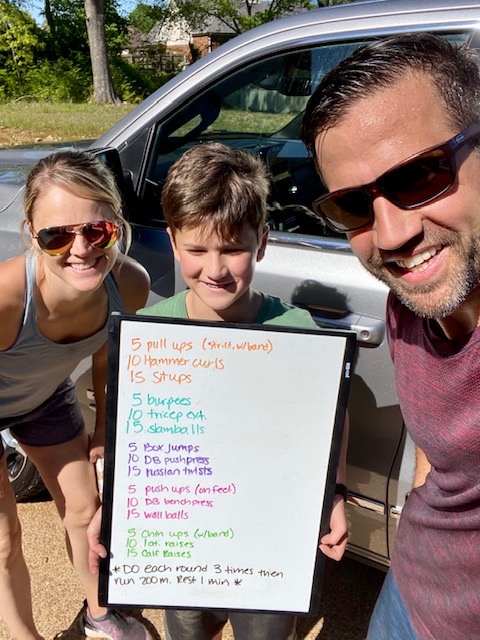 5 pull ups (strict, w/band)
10 Hammer curls
15 Situps
5 burpees
10 tricep ext.
15 slamballs
5 Box jumps
10 DB pushpress
15 russian twists
5 push ups (on feet)
10 DB benchpress
15 wall balls
5 Chin ups (w/band)
10 lat. raises
15 Calf Raises
*DO each round 3 times then
run 200m. Rest 1 min *